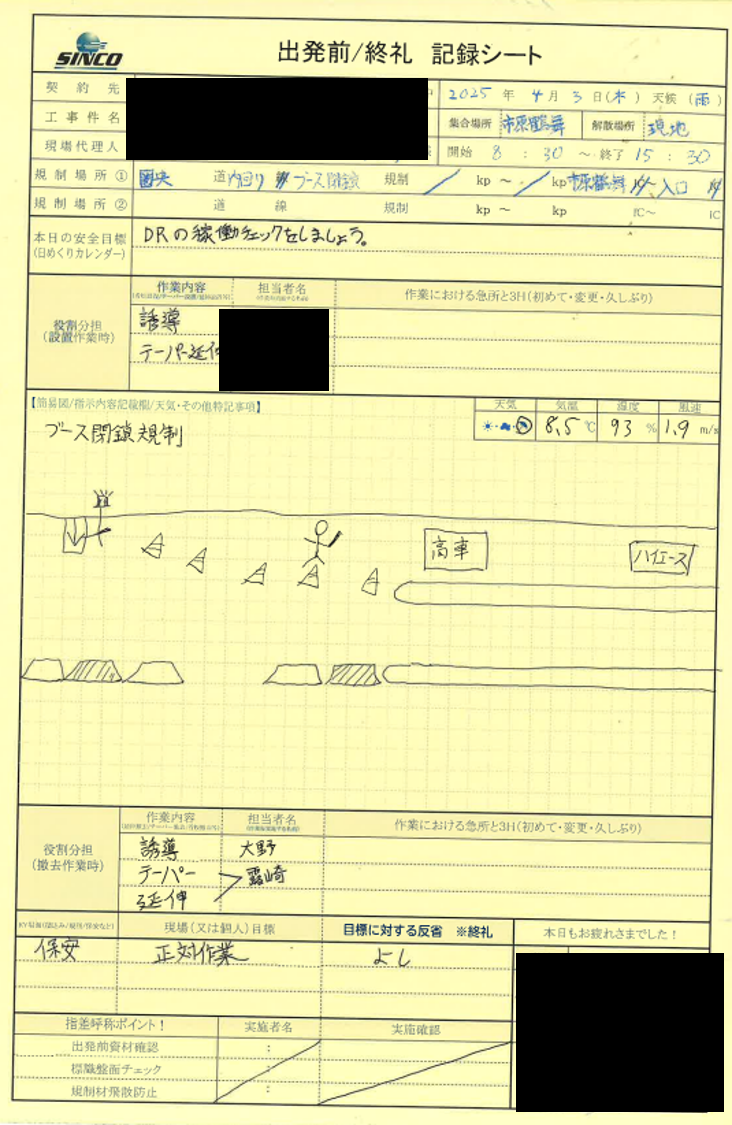 SINCO
出発前/終礼 記録シート
契約先
2025 年 4 月 3 日(木) 天候 (雨)
工事件名
集合場所 市原鶴舞 解散場所 現地
現場代理人
開始 8 : 30 ~ 終了 15 : 30
規制場所① 圏央 道 内回り 線 ブース閉鎖 規制 / kp ~ / kp 市原鶴舞 IC 入口
規制場所② 道 線 規制 kp ~ kp IC~ IC
本日の安全目標
(日めくりカレンダー)
DRの稼働チェックをしましょう。
役割分担
(設置作業時)
作業内容 担当者名 作業における急所と3H(初めて・変更・久しぶり)
誘導
テーパー延伸
【簡易図/指示内容記載欄/天気・その他特記事項】
天気 気温 湿度 風速
8.5 ℃ 93 % 1.9 m/s
ブース閉鎖規制
高車
ハイエース
役割分担
(撤去作業時)
作業内容 担当者名 作業における急所と3H(初めて・変更・久しぶり)
誘導 大野
テーパー 露崎
延伸
現場(又は個人)目標 目標に対する反省 ※終礼 本日もお疲れさまでした!
保安 正対作業 よし
指差呼称ポイント! 実施者名 実施確認
出発前資材確認 :
標識盤面チェック :
規制材飛散防止 :